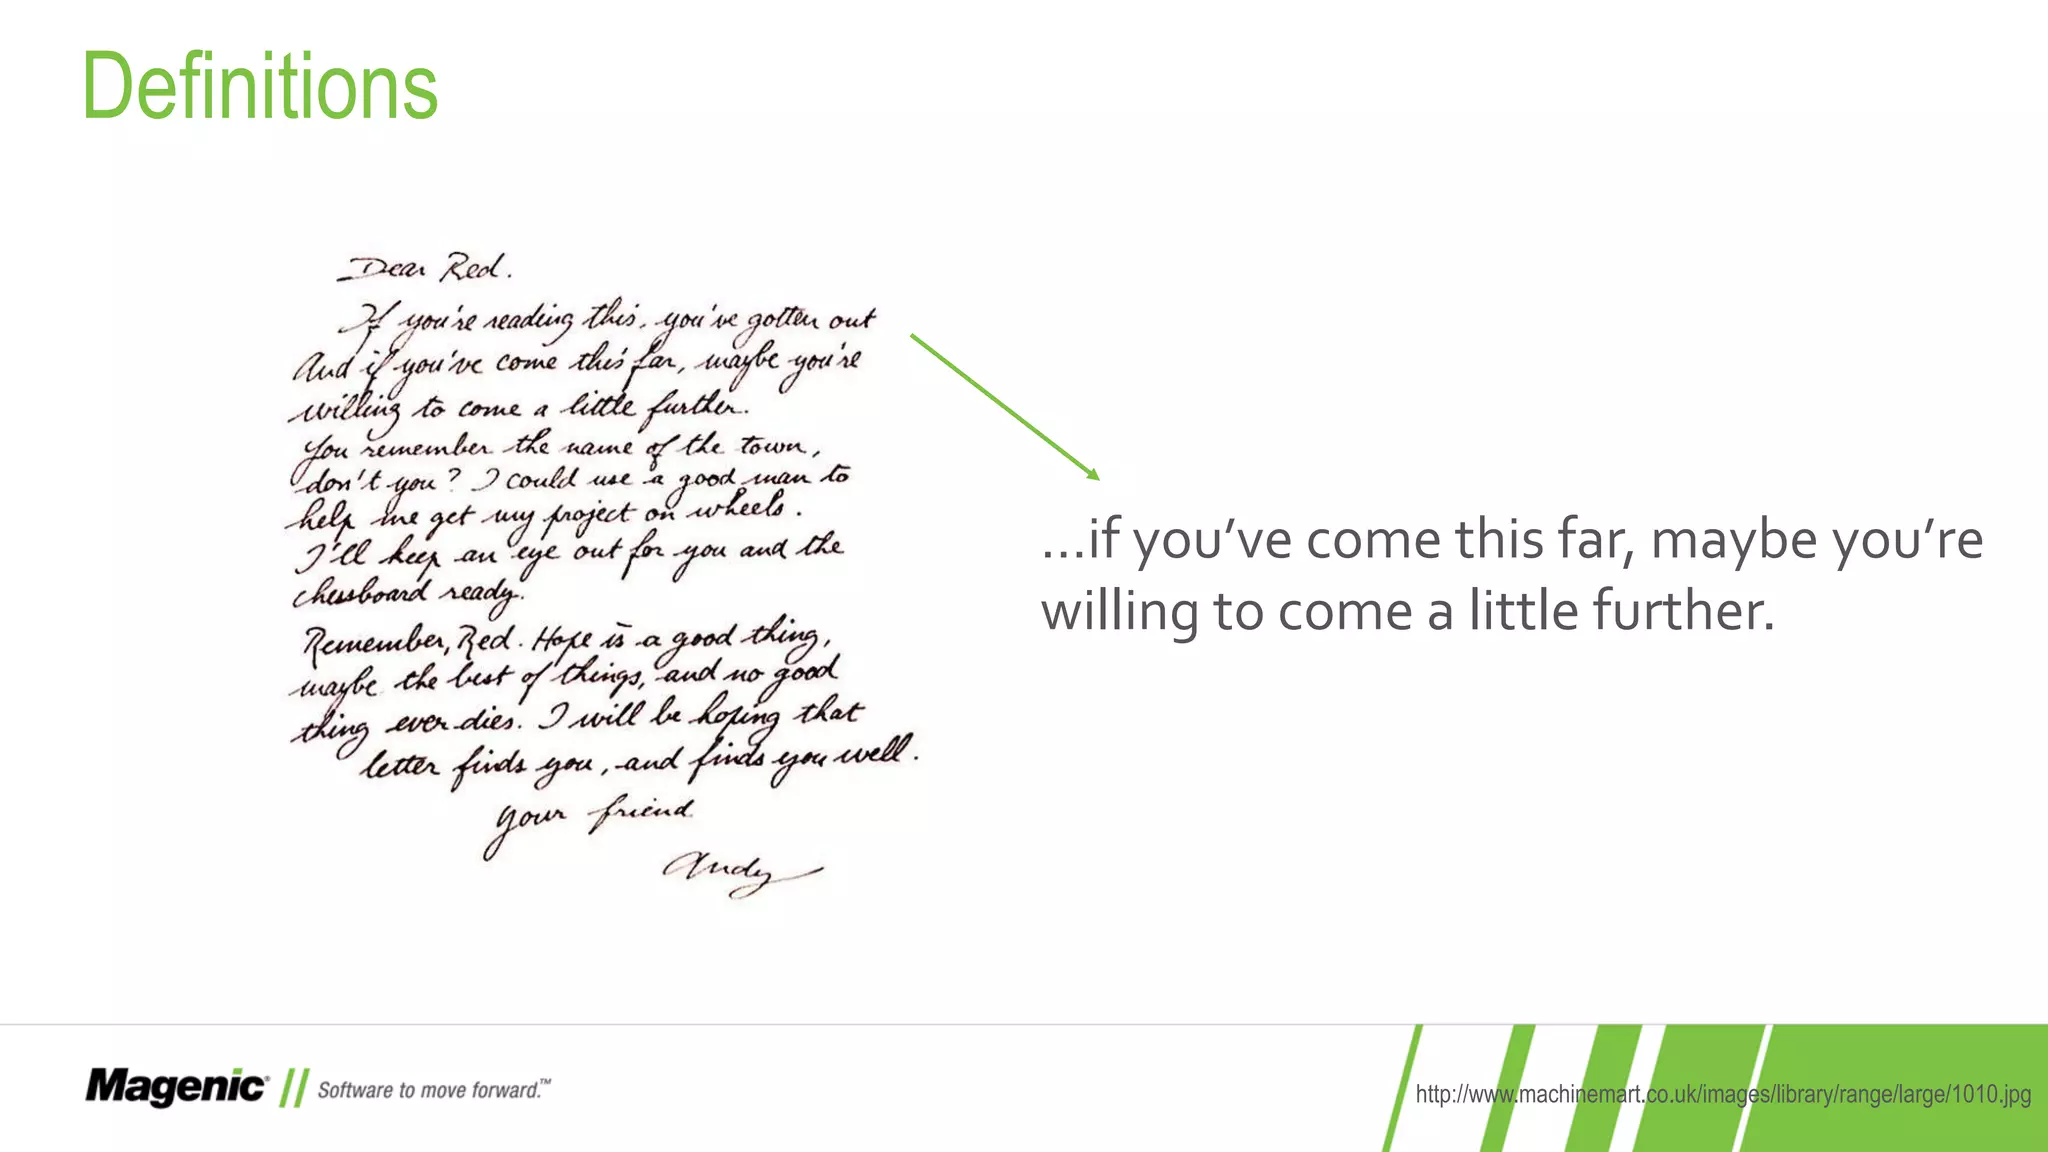 Definitions
Dear Red.
If you're reading this, you've gotten out
And if you've come this far, maybe you're
willing to come a little further.
You remember the name of the town,
don't you? I could use a good man to
help me get my project on wheels.
I'll keep an eye out for you and the
chessboard ready.
Remember, Red. Hope is a good thing,
maybe the best of things, and no good
thing ever dies. I will be hoping that
letter finds you, and finds you well.
Your friend
Andy
...if you’ve come this far, maybe you’re
willing to come a little further.
Magenic® // Software to move forward.™
http://www.machinemart.co.uk/images/library/range/large/1010.jpg